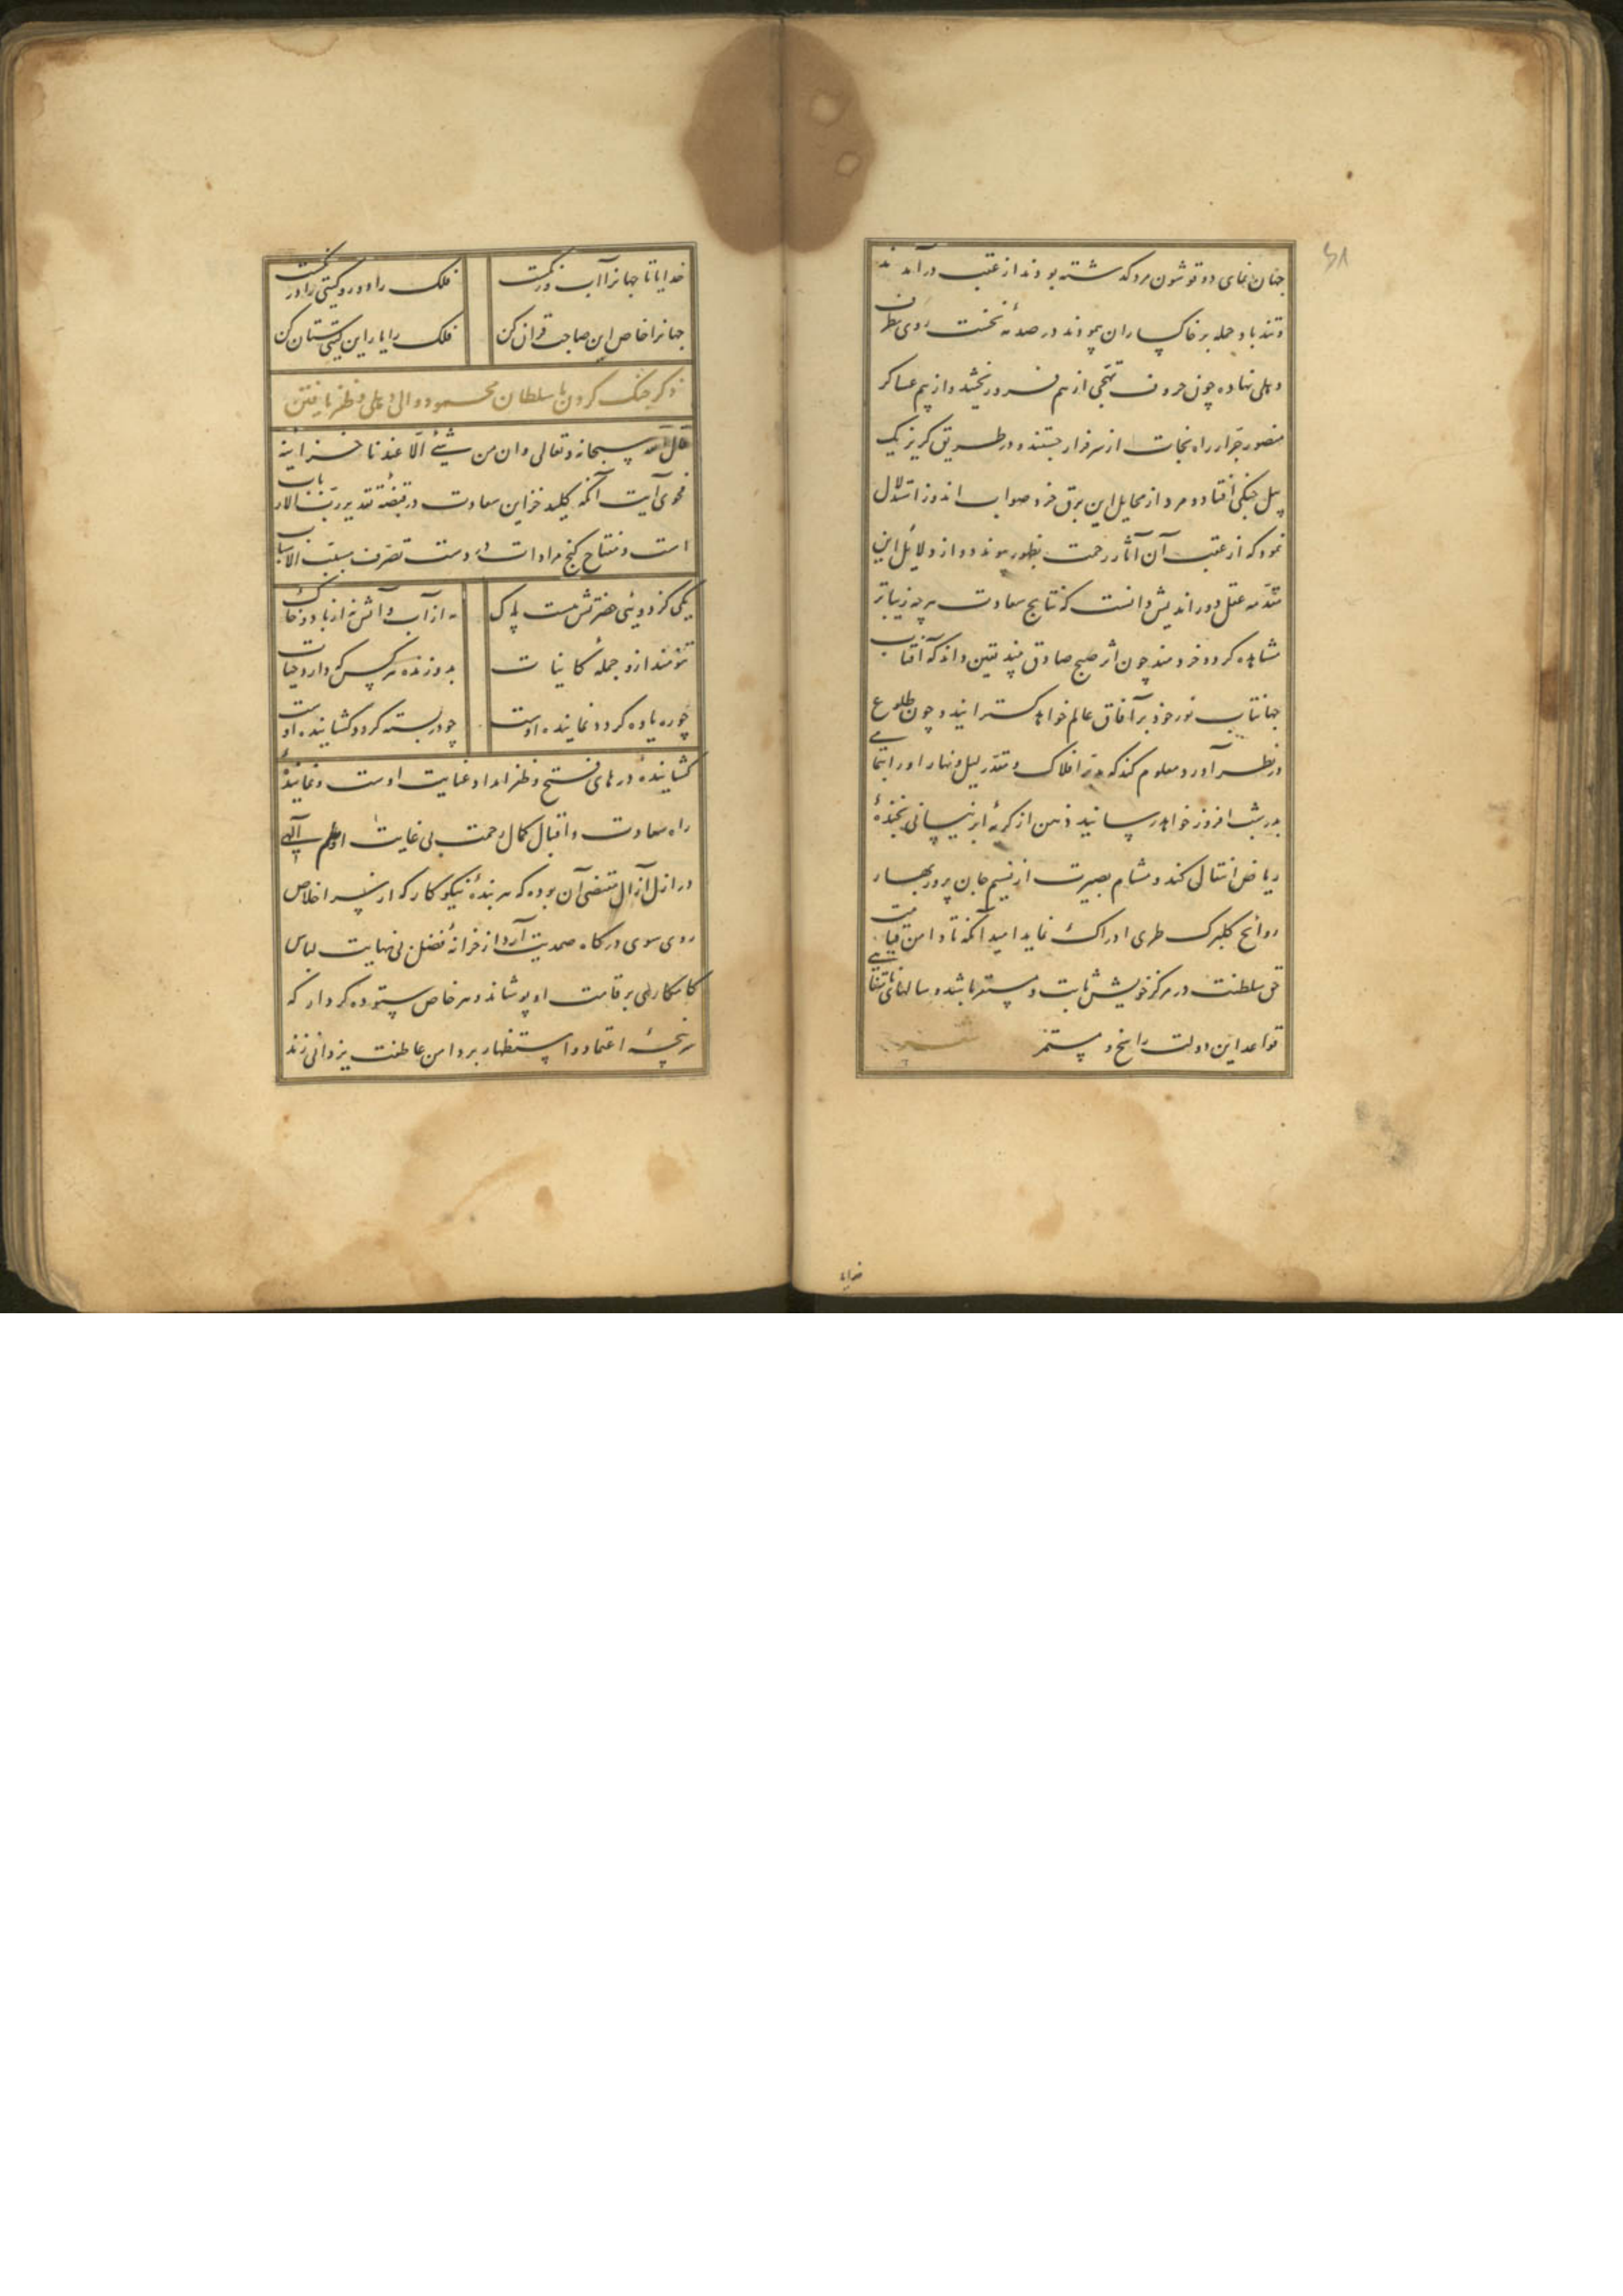 ۶۸
جهان‌نمای دو قوشون مرد که گذشته بودند از عقب درآمدند
و تندباد حمله بر خاکساران پیمودند در صدمهٔ نخست روی بطرف
دهلی نهاده چون حروف تهجی از هم فرو ریختند و از بیم عساکر
منصور جرار راه نجات از سر فرار جستند و در طریق گریز یک
پیل جنگی افتاد و مرد از مخایل این برق خرد صواب اندوز استدلال
نمود که از عقب آن آثار رحمت بظهور پیوندد و از دلائل این
مقدمه عقل دوراندیش دانست که نتایج سعادت هر چه زیباتر
مشاهده گردد خردمند چون اثر صبح صادق بیند یقین داند که آفتاب
جهانتاب نور خود بر آفاق عالم خواهد گسترانید و چون طلوع
در نظر آورد معلوم کند که مدبر افلاک و مقدر لیل و نهار او را بتمامی
بدر شب افروز خواهد رسانید ذهن از گریهٔ ابر نیسانی بخندهٔ
ریاض انتقال کند و مشام بصیرت از نسیم جان پرور بهار
روائح گلبرگ طری ادراک نماید امید آنکه تا دامن قیامت
حق سلطنت در مرکز خویش ثابت و مستقر باشد و سالهای نامتناهی
قواعد این دولت راسخ و مستمر
خدایا
خدایا تا جهانرا آب و رنگست
فلک را دور و گیتی را درنگست
جهانرا خاص این صاحب قران کن
فلک را یار این گیتی ستان کن
ذکر جنگ کردن با سلطان محمود والی دهلی و ظفر یافتن
قال الله سبحانه و تعالی و ان من شیئ الا عندنا خزاینه
فحوی آیت آنکه کلید خزاین سعادت در قبضهٔ تقدیر رب الارباب
است و مفتاح گنج مرادات در دست تصرف مسبب الاسباب
یکی کز دوئی حضرتش هست پاک
نه از آب و آتش نه از باد و خاک
تنومند ازو جملهٔ کاینات
بدو زنده هر کس که دارد حیات
چو ره یاوه گردد نماینده اوست
چو در بسته گردد گشاینده اوست
گشایندهٔ درهای فتح و ظفر امداد عنایت اوست و نمایندهٔ
راه سعادت و اقبال کمال رحمت بی غایت او حکم آلهی
در ازل آزال مقتضی آن بوده که هر بندهٔ نیکوکار که از سر اخلاص
روی سوی درگاه صمدیت آرد از خزانهٔ فضل بی نهایت لباس
کامکاری بر قامت او پوشاند و هر خاص ستوده کردار که
سرپنجهٔ اعتماد و استظهار بر دامن عاطفت یزدانی زند